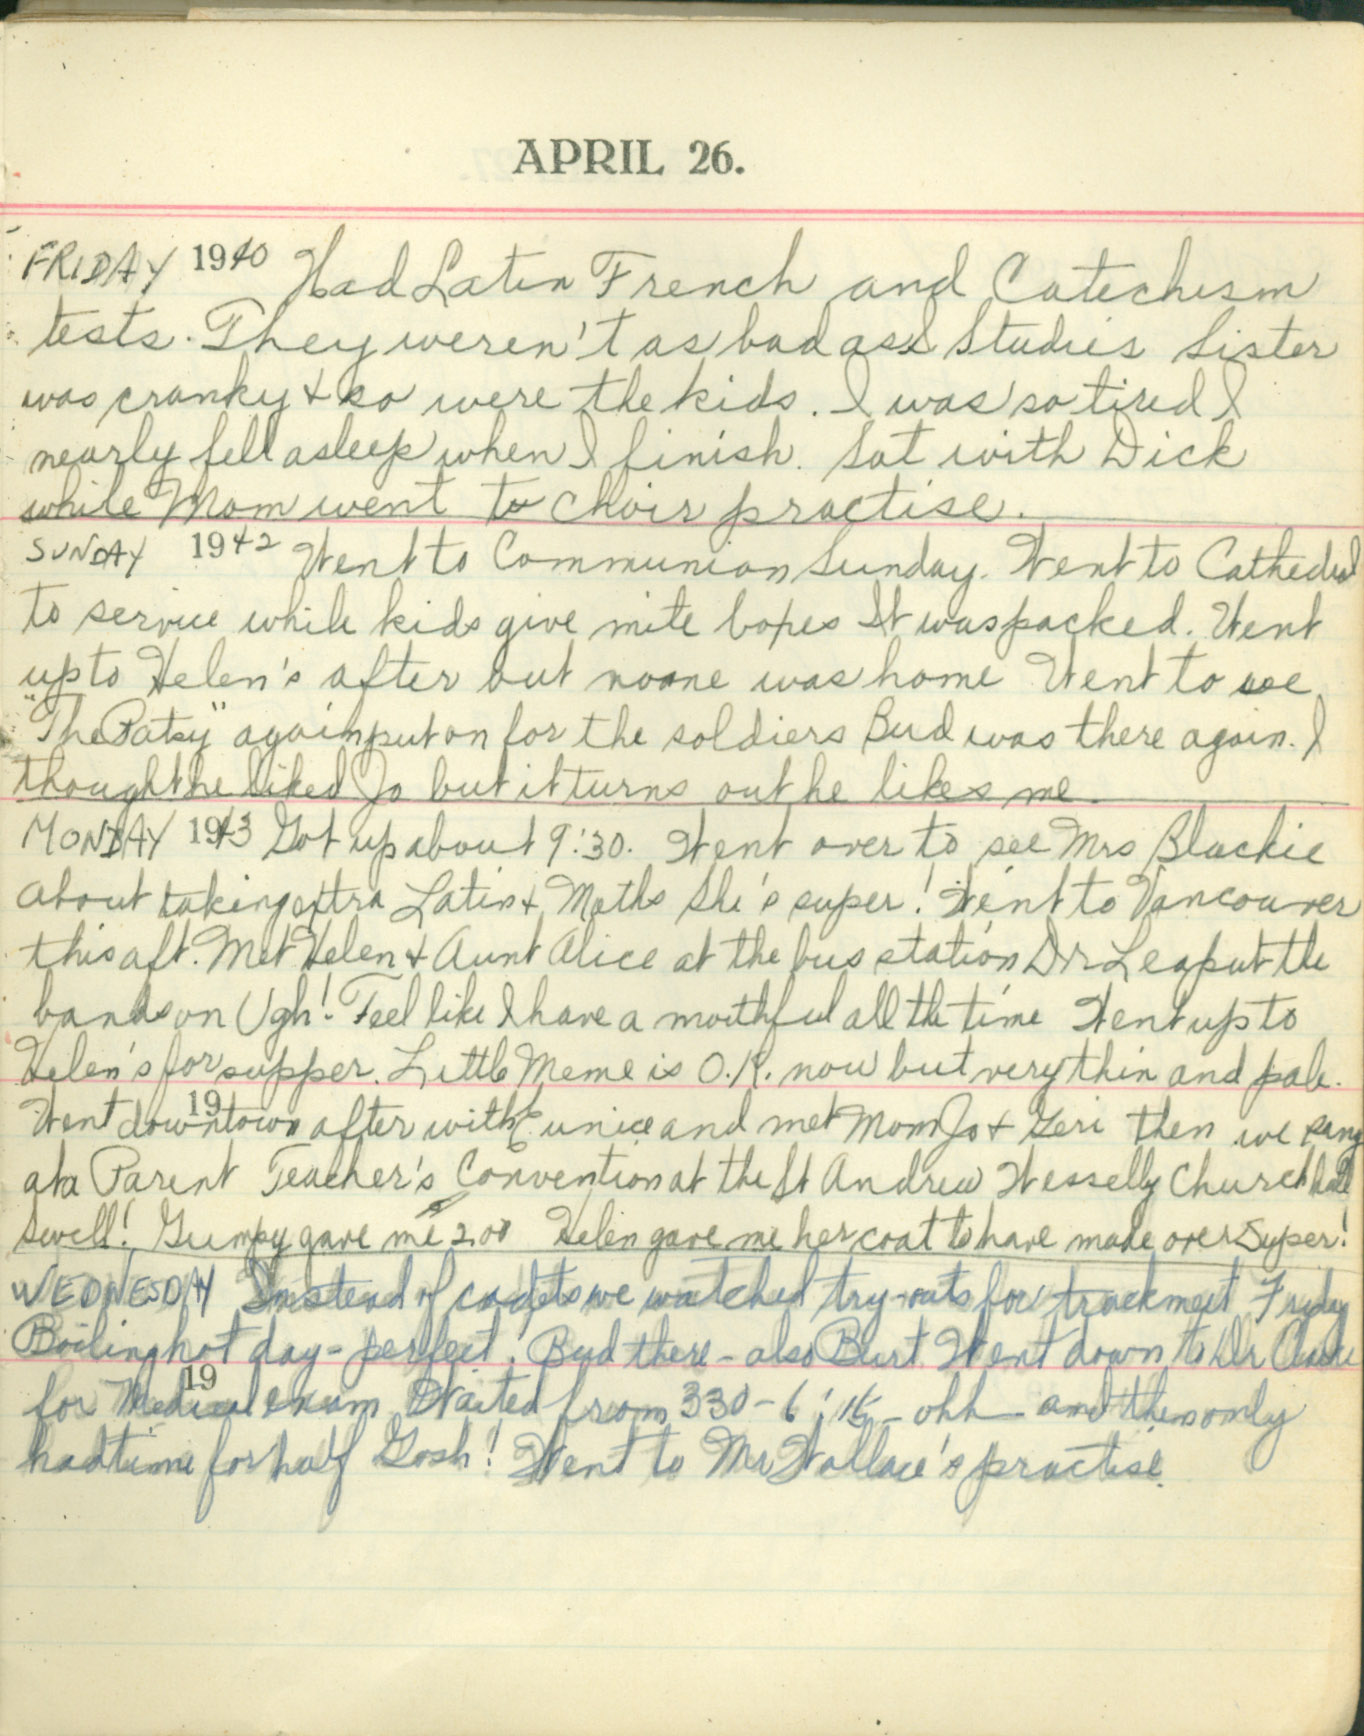 APRIL 26.
FRIDAY 1940 Had Latin French and Catechism
tests. They weren't as bad as I Studies Sister
was cranky + so were the kids. I was so tired I
nearly fell asleep when I finish. Sat with Dick
while Mom went to choir practise.
SUNDAY 1942 Went to Communion Sunday. Went to Cathedral
to service while kids give mite boxes It was packed. Went
up to Helen's after but noone was home Went to see
"The Patsy" again put on for the soldiers Bud was there again. I
thought he liked Jo but it turns out he likes me.
MONDAY 1943 Got up about 9:30. Went over to see Mrs Blackie
about taking extra Latin + Maths She's super! Went to Vancouver
this aft. Met Helen + Aunt Alice at the bus station Dr Leg put the
bands on Ugh! Feel like I have a mouthful all the time Went up to
Helen's for supper. Little Meme is O.K. now but very thin and pale.
19
Went downtown after with Eunice and met Mom Jo + Geri then we sang
at a Parent Teacher's Convention at the St Andrew Wesselly Church hall
Swell! Gumpy gave me 2.00 Helen gave me her coat to have made over Super!
WEDNESDAY Instead of cadets we watched try-outs for track meet Friday
Boiling hot day - perfect. Bud there - also Burt Went down to Dr
19
for Medical exam Waited from 330 - 6:15 - ohh - and then only
had time for half Gosh! Went to Mr Wallace's practise.